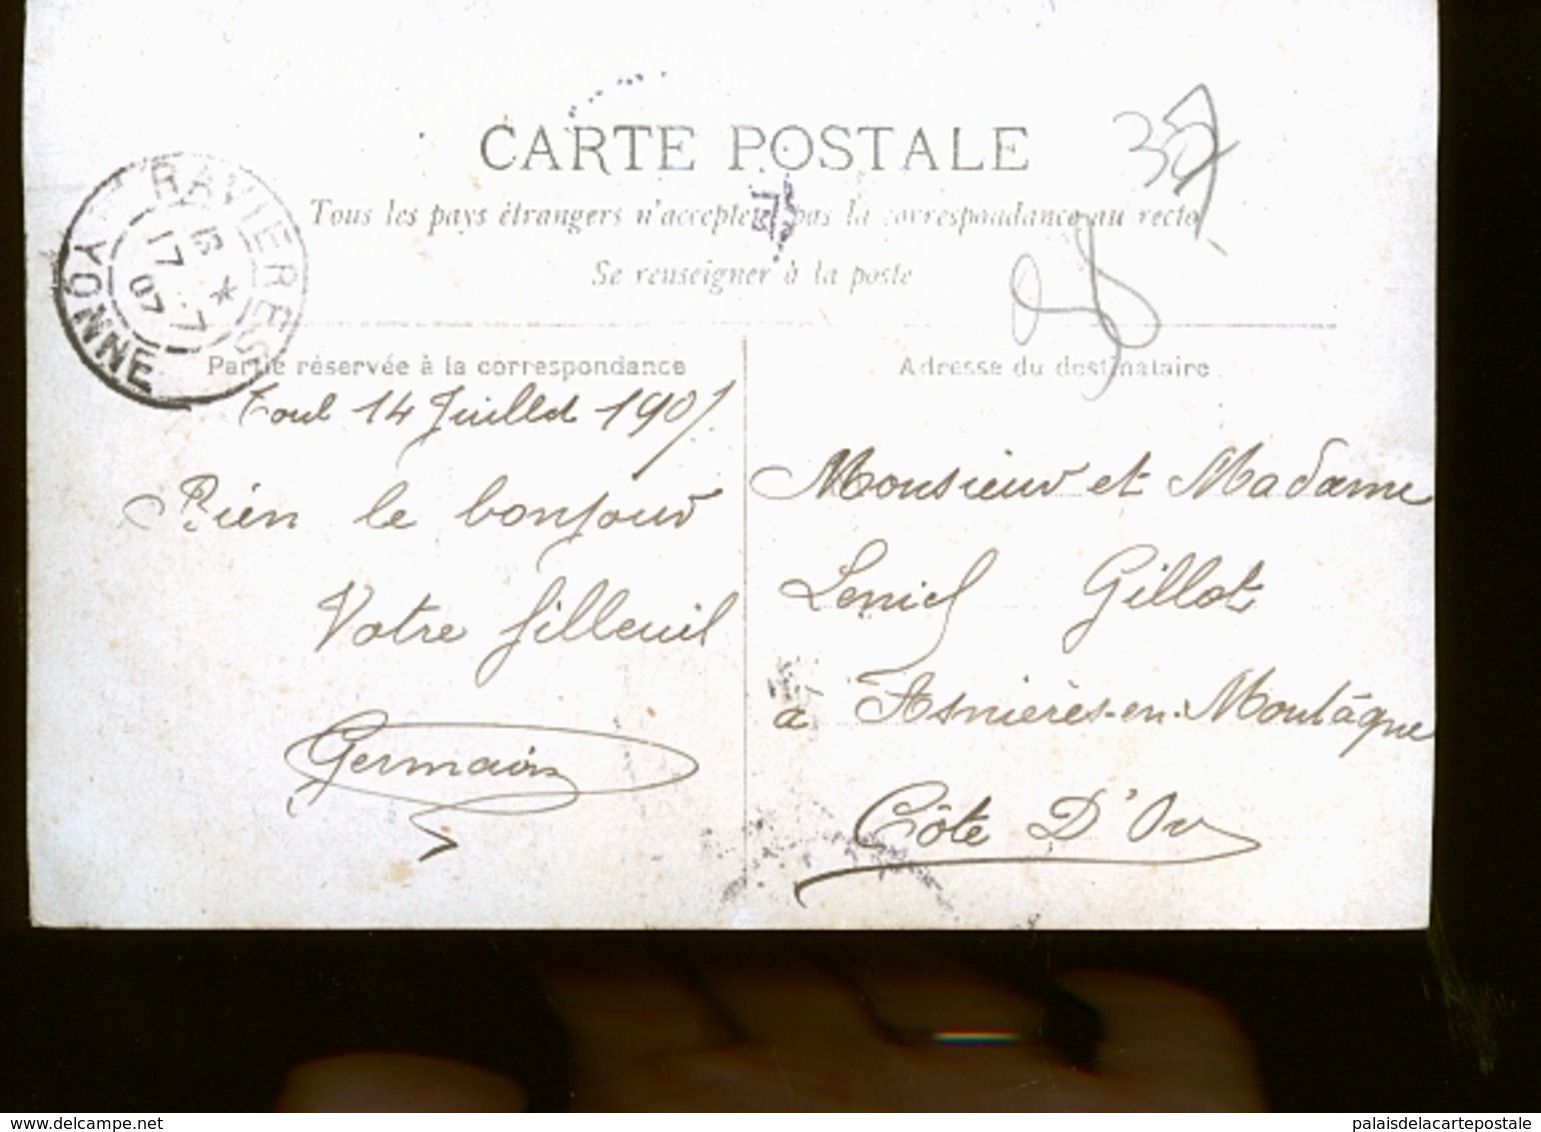 CARTE POSTALE
Tous les pays étrangers n'acceptent pas la correspondance au recto
Se renseigner à la poste
RAVIERES
17 7
07
YONNE
Partie réservée à la correspondance
Toul 14 Juillet 1907.
Bien le bonjour
Votre filleuil
Germain
Adresse du destinataire
Monsieur et Madame
Gillot
à Asnières-en-Montagne
Côte D'Or
delcampe.net
palaisdelacartepostale